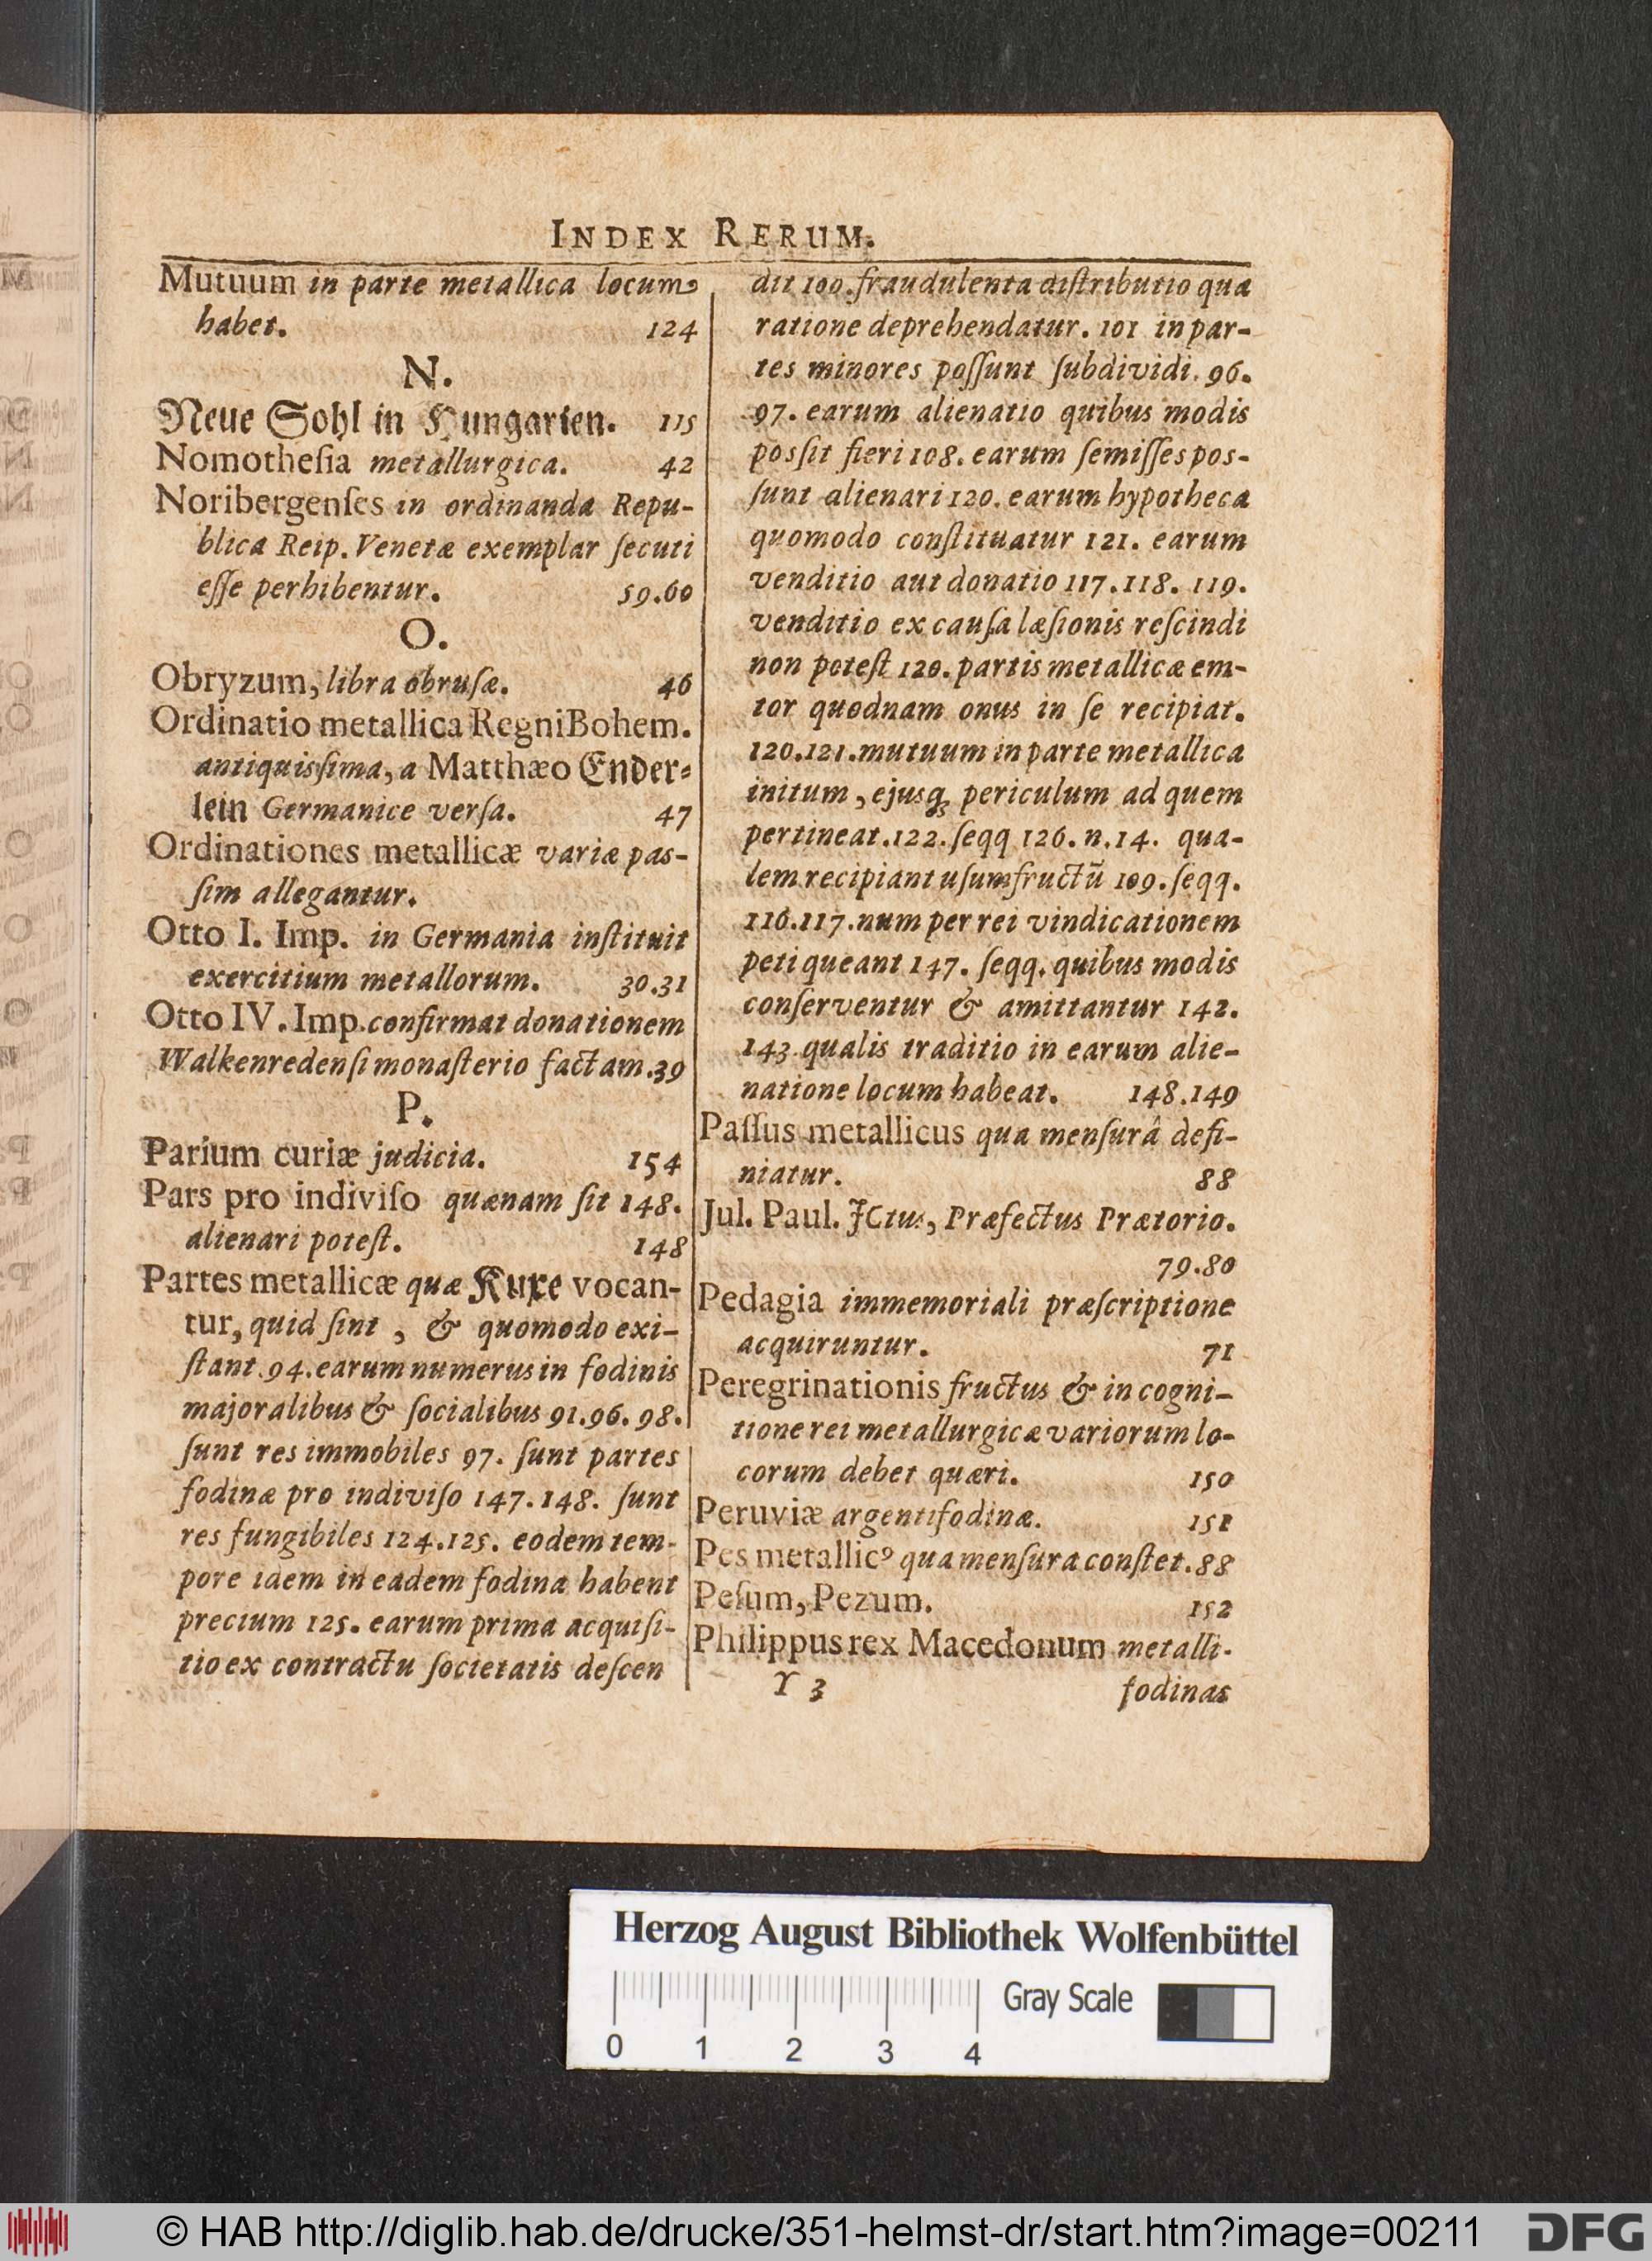 INDEX RERUM.
Mutuum in parte metallica locum
habet. 124
N.
Neue Sohl in Hungarien. 115
Nomotheſia metallurgica. 42
Noribergenſes in ordinanda Repu-
blica Reip. Venetæ exemplar ſecuti
eſſe perhibentur. 59.60
O.
Obryzum, libra obruſæ. 46
Ordinatio metallica Regni Bohem.
antiquisſima, a Matthæo Ender-
lein Germanice verſa. 47
Ordinationes metallicæ variæ pas-
ſim allegantur.
Otto I. Imp. in Germania inſtituit
exercitium metallorum. 30.31
Otto IV. Imp. confirmat donationem
Walkenredenſi monaſterio factam. 39
P.
Parium curiæ judicia. 154
Pars pro indiviſo quænam ſit 148.
alienari poteſt. 148
Partes metallicæ quæ Kuxe vocan-
tur, quid ſint, & quomodo exi-
ſtant. 94. earum numerus in fodinis
majoralibus & ſocialibus 91.96.98.
ſunt res immobiles 97. ſunt partes
fodinæ pro indiviſo 147.148. ſunt
res fungibiles 124.125. eodem tem-
pore idem in eadem fodina habent
precium 125. earum prima acquiſi-
tio ex contractu ſocietatis deſcen
dit 100. fraudulenta diſtributio qua
ratione deprehendatur. 101 in par-
tes minores poſſunt ſubdividi. 96.
97. earum alienatio quibus modis
posſit fieri 108. earum ſemiſſes pos-
ſunt alienari 120. earum hypotheca
quomodo conſtituatur 121. earum
venditio aut donatio 117.118.119.
venditio ex cauſa læſionis reſcindi
non poteſt 120. partis metallicæ em-
tor quodnam onus in ſe recipiat.
120.121. mutuum in parte metallica
initum, ejusq́; periculum ad quem
pertineat. 122. ſeqq 126. n. 14. qua-
lem recipiant uſumfructū 109. ſeqq.
116.117. num per rei vindicationem
peti queant 147. ſeqq. quibus modis
conſerventur & amittantur 142.
143. qualis traditio in earum alie-
natione locum habeat. 148.149
Paſſus metallicus qua menſurâ defi-
niatur. 88
Jul. Paul. JCtus, Præfectus Prætorio.
79.80
Pedagia immemoriali præſcriptione
acquiruntur. 71
Peregrinationis fructus & in cogni-
tione rei metallurgicæ variorum lo-
corum debet quæri. 150
Peruviæ argentifodinæ. 151
Pes metallicꝰ qua menſura conſtet. 88
Peſum, Pezum. 152
Philippus rex Macedonum metalli-
Y 3 fodinas
Herzog August Bibliothek Wolfenbüttel
Gray Scale
0 1 2 3 4
© HAB http://diglib.hab.de/drucke/351-helmst-dr/start.htm?image=00211
DFG